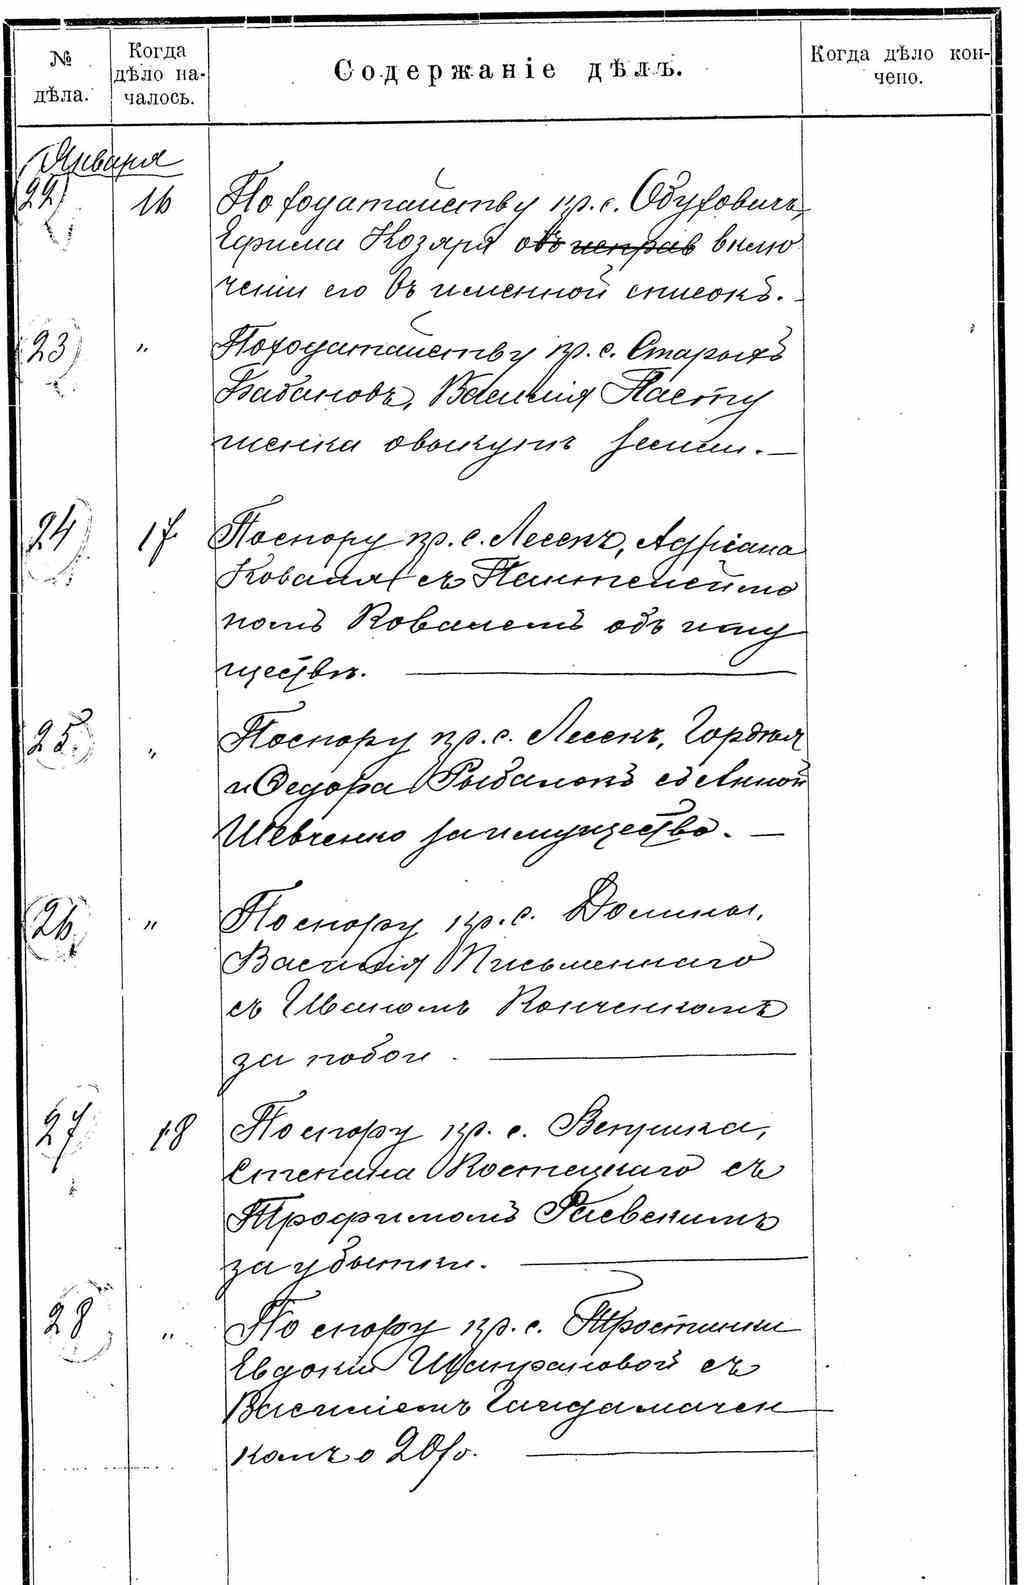 № дѣла.
Когда дѣло на-
чалось.
Содержаніе дѣлъ.
Когда дѣло кон-
чено.
Января
22 16 По ходатайству кр. с. Обуховичъ,
Ефима Козяря объ исправ вклю
ченіи его въ именной списокъ.
23 " По ходатайству кр. с. Старыхъ
Бабановъ, Василія Пасту
шенка о выкупѣ земли. —
24 17 По спору кр. с. Лесекъ, Адріана
Коваля съ Пантелеймо
номъ Ковалемъ объ иму
ществѣ. —
25 " По спору кр. с. Лесекъ, Гордѣя
и Ѳедора Рыбалокъ съ Анной
Шевченко за имущество. —
26 " По спору кр. с. Долины,
Василія Письменнаго
съ Иваномъ Конченкомъ
за побои. —
27 18 По спору кр. с.
Степана Костецкаго съ
Трофимомъ Раевскимъ
за убытки. —
28 " По спору кр. с. Тростинки
Евдокіи Шапрановой съ
Василіемъ Гайдамачен
комъ о 20 р. —